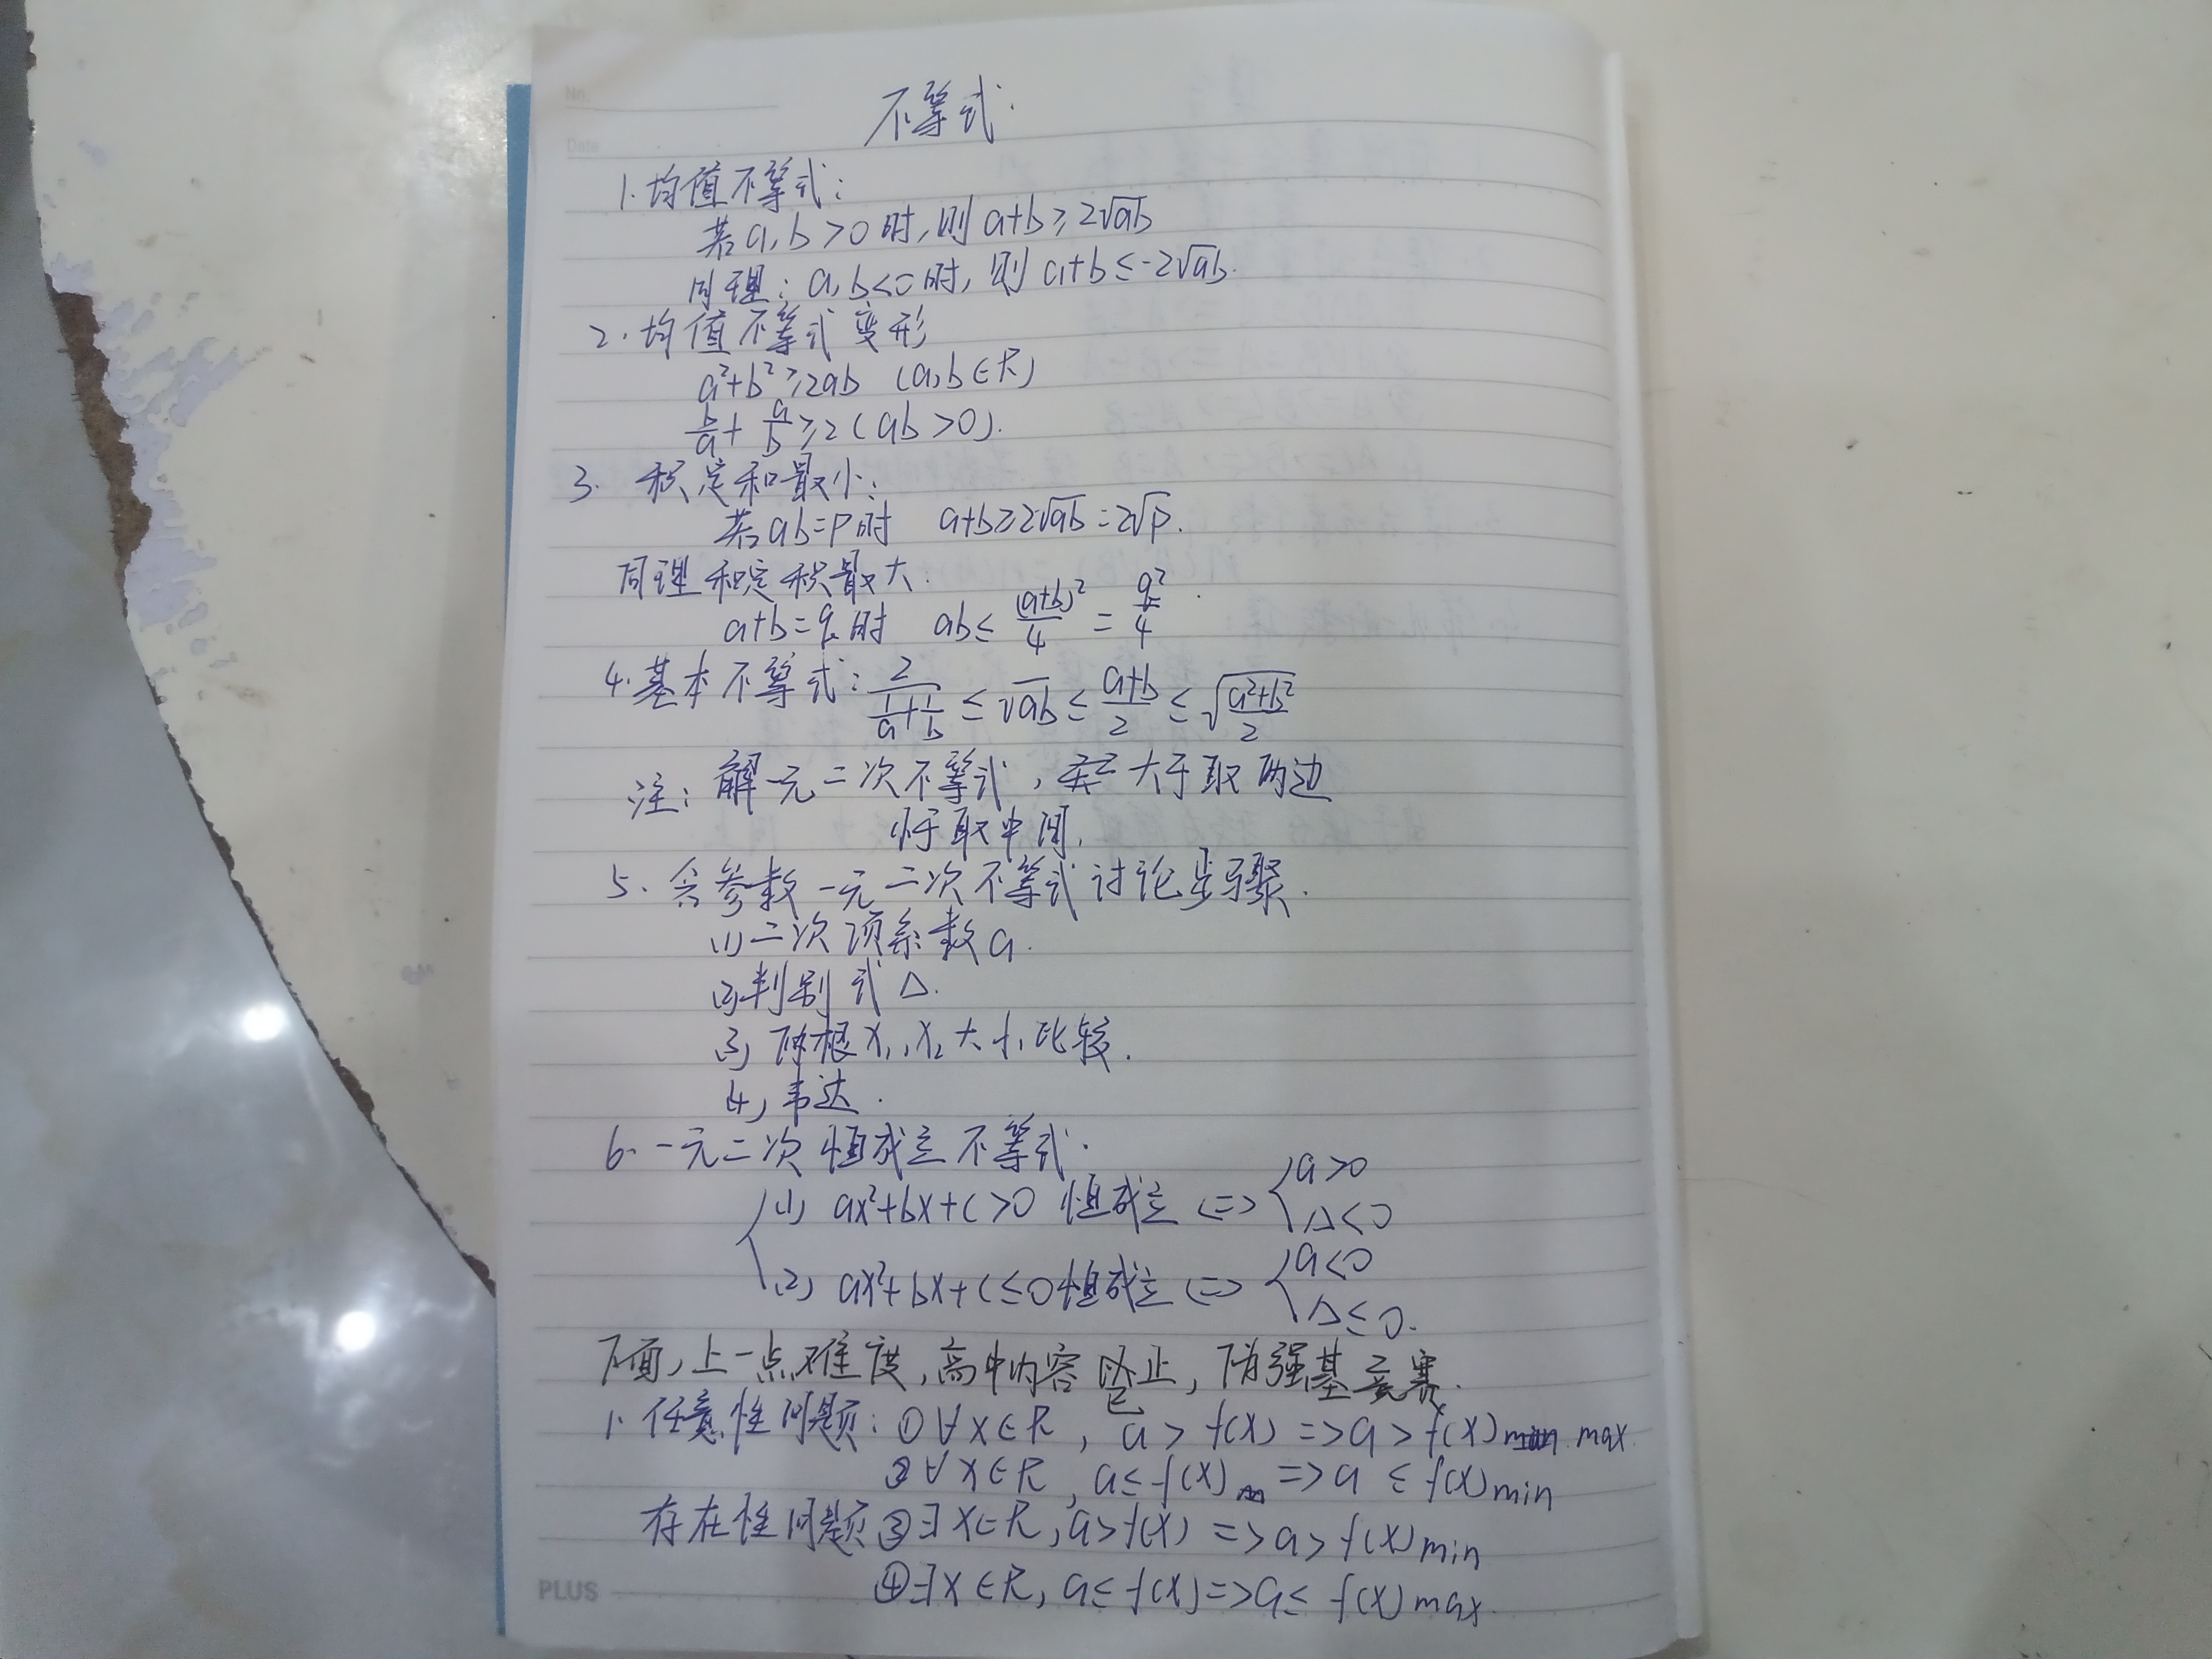 No.
Date
不等式.
1. 均值不等式:
若a,b>0时,则a+b≥2√ab
同理:a,b<0时,则a+b≤-2√ab.
2. 均值不等式变形
a²+b²≥2ab (a,b∈R)
b/a + a/b ≥2 (ab>0).
3. 积定和最小:
若ab=P时 a+b≥2√ab=2√P.
同理和定积最大.
a+b=q时 ab≤ (a+b)²/4 = q²/4.
4. 基本不等式: 2/(1/a+1/b) ≤ √ab ≤ (a+b)/2 ≤ √((a²+b²)/2)
注: 解一元二次不等式, 大于取两边
小于取中间.
5. 含参数一元二次不等式讨论步骤.
(1) 二次项系数a.
(2) 判别式△.
(3) 两根x₁,x₂大小比较.
(4) 韦达.
6. 一元二次恒成立不等式.
(1) ax²+bx+c>0 恒成立 <=> { a>0
△<0
(2) ax²+bx+c≤0 恒成立 <=> { a<0
△≤0.
下面,上一点难度,高中内容暂止,附强基竞赛.
1. 任意性问题: ①∀x∈R, a>f(x) => a>f(x)max.
②∀x∈R, a≤f(x) => a≤f(x)min
存在性问题 ③∃x∈R, a>f(x) => a>f(x)min
④∃x∈R, a≤f(x) => a≤f(x)max.
PLUS